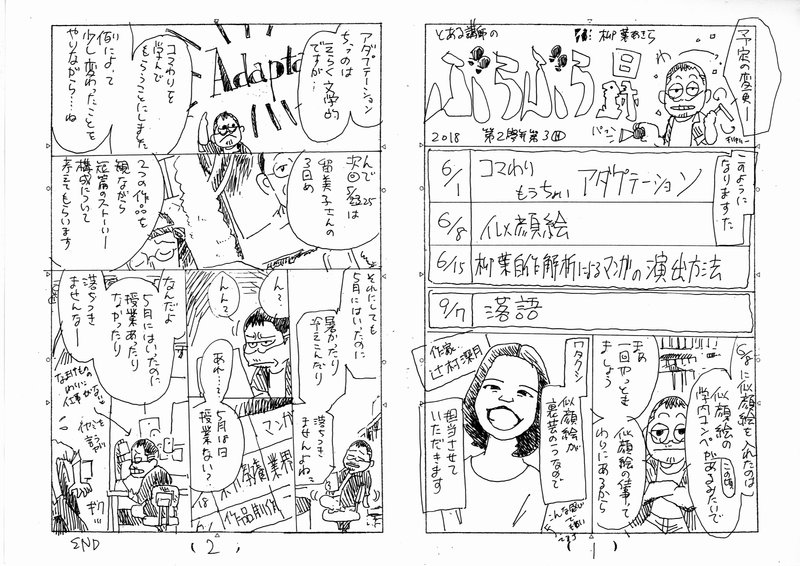 予定の変更ー
とある講師の
柳葉あきら
ぶらぶら日記
2018 第2學年第3回
パーン
このように
なりますた
6/1 コマわり
もうちょい アダプテーション
6/8 似顔絵
6/15 柳葉自作解析によるマンガの演出方法
9/7 落語
6/8に似顔絵を入れたのは
この頃
似顔絵の
学内コンペがあるみたいで
まあ
一回やっとき
ましょう
似顔絵の仕事って
わりにあるから
作家
辻村深月
ワタクシ
似顔絵が
裏芸の一つなので
担当させて
いただきます
こんな感じ
(1)
アダプテーション
ちっのは
えらく文学的
ですが…
Adapta
コマわりを
学んで
もらうことにしました
例によって
少し変わったことを
やりながら…ね
んで
次回5/25は
留美子さんの
3回め
2つの作品を
観ながら
短篇のストーリー
構成について
考えてもらいます
それにしても
5月にはいったのに
暑かったり
冷えこんだり
落ちつき
ませんよね
ん?
ん?
あれ…?
5月18日
授業ない?
マンガ
業界
作品制作
18
6/1
なんだよ
5月にはいったのに
授業あったり
なかったり
落ちつき
ませんなー
イヤミを
言う
ギクッ
END
(2)